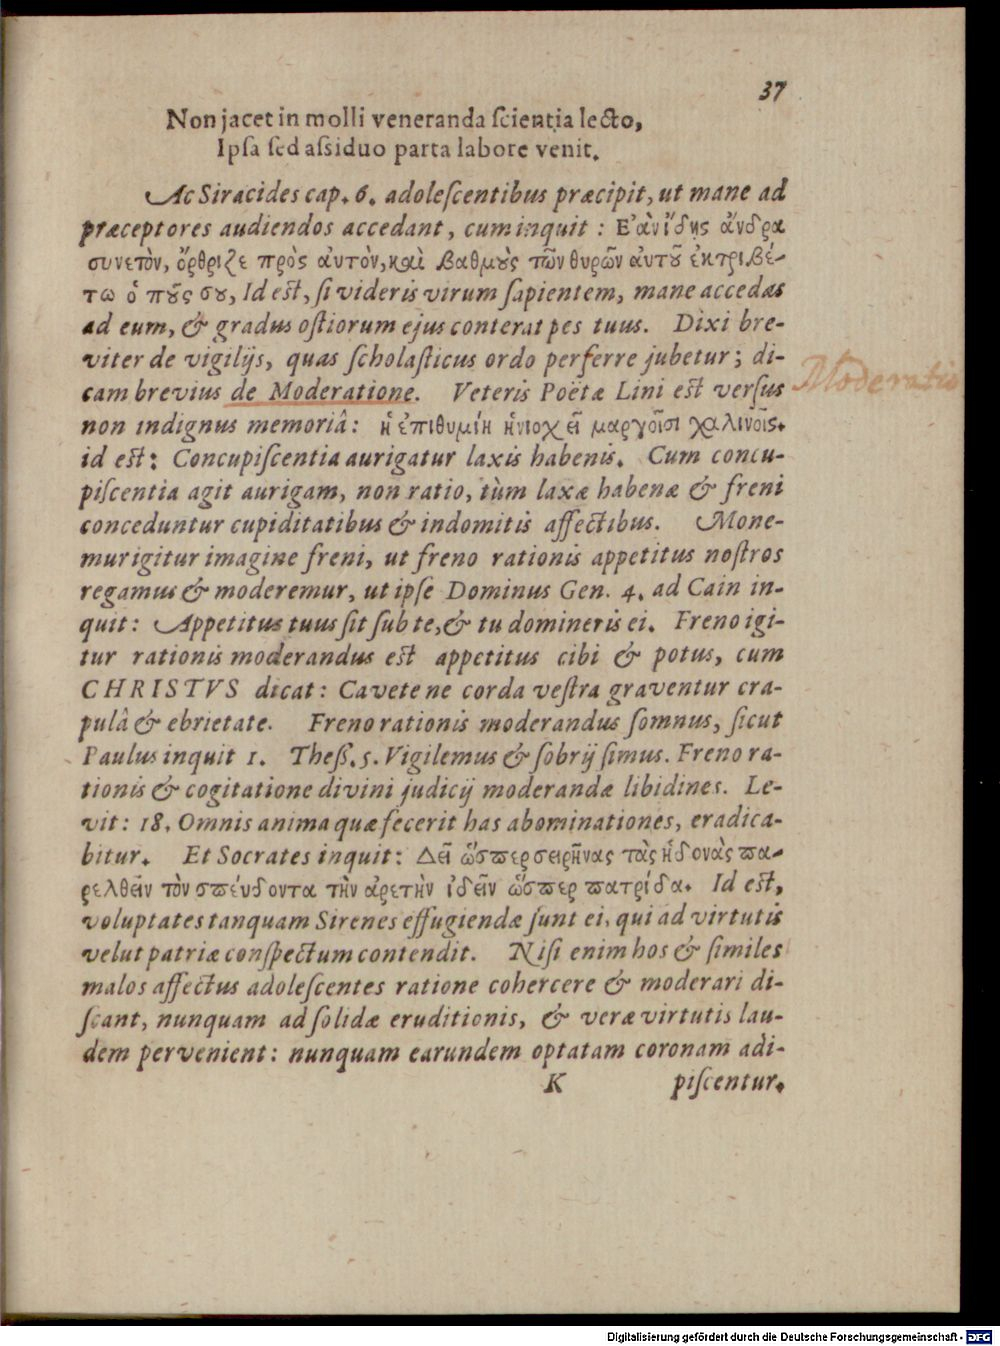 37
Non jacet in molli veneranda ſcientia lecto,
Ipſa ſed aſsiduo parta labore venit.
Ac Siracides cap. 6. adoleſcentibus præcipit, ut mane ad
præceptores audiendos accedant, cum inquit: Εἀν ἴδης ἄνδρα
συνετὸν, ὄρθριζε πρὸς ἀυτὸν, καὶ βαθμοὺς τῶν θυρῶν ἀυτοῦ ἐκτριβέ-
τω ὁ ποῦς σου, Id eſt, ſi videris virum ſapientem, mane accedas
ad eum, & gradus oſtiorum ejus conterat pes tuus. Dixi bre-
viter de vigilijs, quas ſcholaſticus ordo perferre jubetur; di-
cam brevius de Moderatione. Veteris Poëtæ Lini eſt verſus
Moderatio
non indignus memoriâ: ἡ ἐπιθυμίη ἡνιοχεῖ μαργοῖσι χαλινοῖς.
id eſt: Concupiſcentia aurigatur laxis habenis. Cum concu-
piſcentia agit aurigam, non ratio, tùm laxæ habenæ & freni
conceduntur cupiditatibus & indomitis affectibus. Mone-
mur igitur imagine freni, ut freno rationis appetitus noſtros
regamus & moderemur, ut ipſe Dominus Gen. 4. ad Cain in-
quit: Appetitus tuus ſit ſub te, & tu domineris ei. Freno igi-
tur rationis moderandus est appetitus cibi & potus, cum
CHRISTVS dicat: Cavete ne corda veſtra graventur cra-
pulâ & ebrietate. Freno rationis moderandus ſomnus, ſicut
Paulus inquit 1. Theß. 5. Vigilemus & ſobrij ſimus. Freno ra-
tionis & cogitatione divini judicij moderandæ libidines. Le-
vit: 18. Omnis anima quæ fecerit has abominationes, eradica-
bitur. Et Socrates inquit: Δεῖ ὥσπερ σειρῆνας τὰς ἡδονὰς πα-
ρελθεῖν τὸν σπέυδοντα τὴν ἀρετὴν ἰδεῖν ὥσπερ πατρίδα. Id eſt,
voluptates tanquam Sirenes effugiendæ ſunt ei, qui ad virtutis
velut patriæ conſpectum contendit. Niſi enim hos & ſimiles
malos affectus adoleſcentes ratione cohercere & moderari di-
ſcant, nunquam ad ſolidæ eruditionis, & veræ virtutis lau-
dem pervenient: nunquam earundem optatam coronam adi-
K piſcentur.
Digitalisierung gefördert durch die Deutsche Forschungsgemeinschaft - DFG